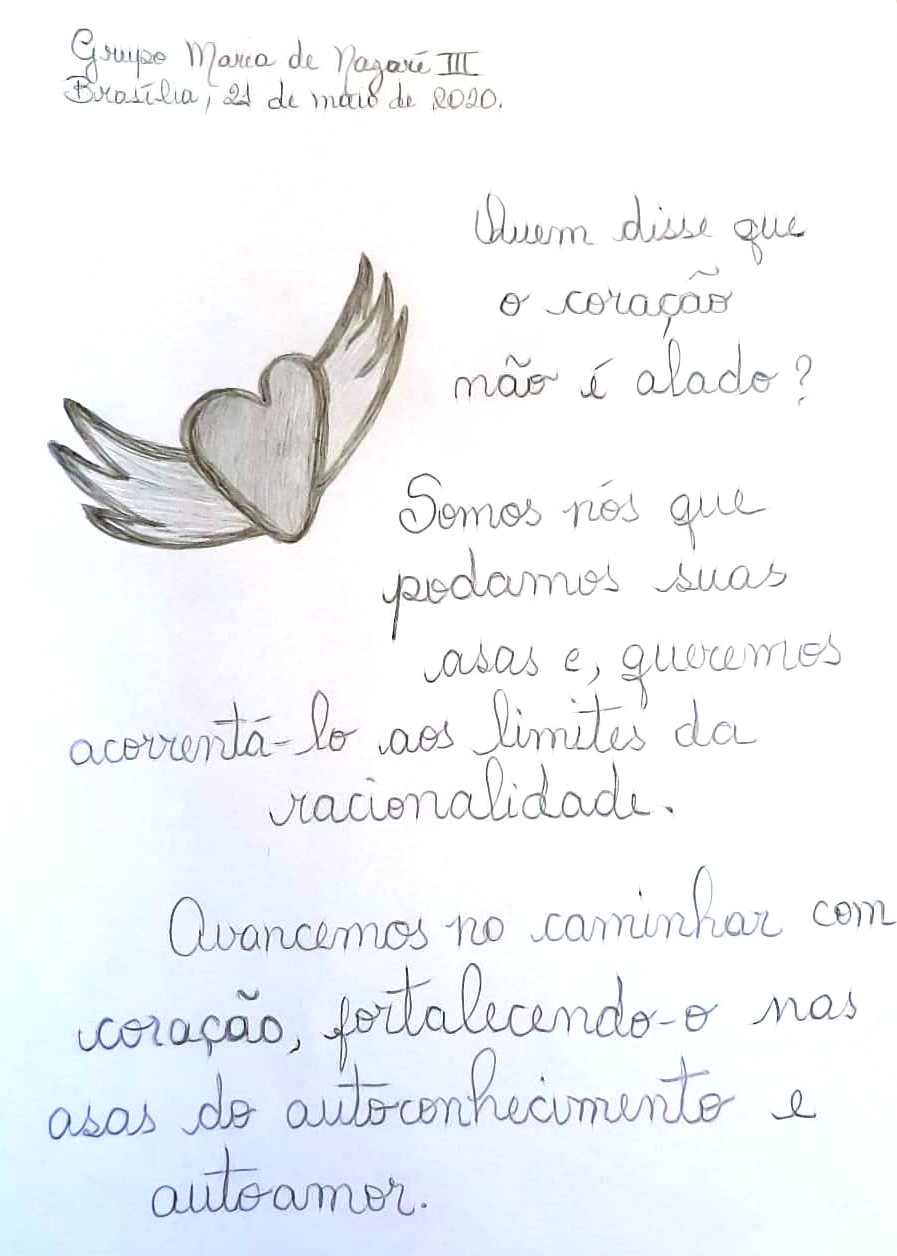 Grupo Maria de Nazaré III
Brasília, 21 de maio de 2020.
Quem disse que
o coração
não é alado?
Somos nós que
podamos suas
asas e, queremos
acorrentá-lo aos limites da
racionalidade.
Avancemos no caminhar com
coração, fortalecendo-o nas
asas do autoconhecimento e
autoamor.